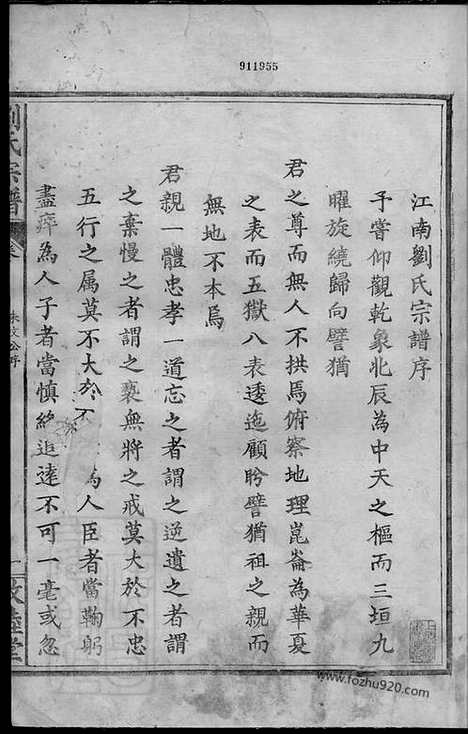 911955
江南劉氏宗譜序
予嘗仰觀乾象北辰為中天之樞而三垣九
曜旋繞歸向譬猶
君之尊而無人不拱焉俯察地理崑崙為華夏
之表而五嶽八表逶迤顧盼譬猶祖之親而
無地不本焉
君親一體忠孝一道忘之者謂之逆遺之者謂
之棄慢之者謂之褻無將之戒莫大於不忠
五行之属莫不大於不
為人臣者當鞠躬
盡瘁為人子者當慎終追遠不可一毫或忽
劉氏宗譜
朱文公序
一
敦睦堂
www.fozhu920.com